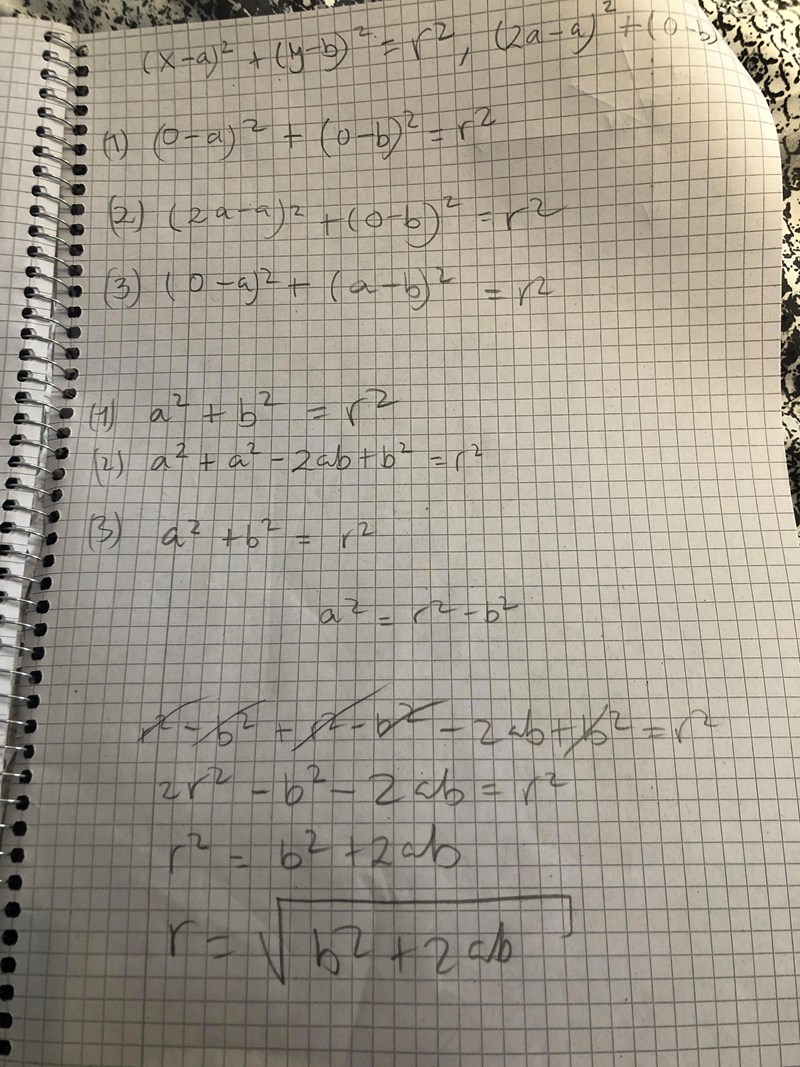 (x-a)² + (y-b)² = r², (2a-a)² + (0-b)
(1) (0-a)² + (0-b)² = r²
(2) (2a-a)² + (0-b)² = r²
(3) (0-a)² + (a-b)² = r²
(1) a² + b² = r²
(2) a² + a² - 2ab + b² = r²
(3) a² + b² = r²
a² = r² - b²
r² - b² + r² - b² - 2ab + b² = r²
2r² - b² - 2ab = r²
r² = b² + 2ab
r = √(b² + 2ab)